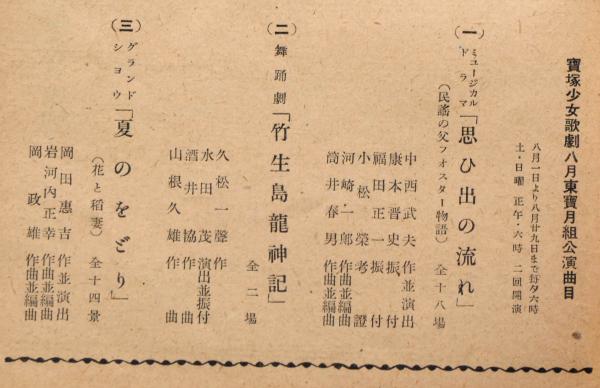 寶塚少女歌劇八月東寶月組公演曲目
八月一日より八月廿九日まで毎夕六時
土・日曜 正午・六時 二回開演
(一) ミュージカルドラマ「思ひ出の流れ」
(民謠の父フオスター物語) 全十八場
中西武夫 作並演出
康本晋史 振付
福田正一 振付
小松榮 考證
河崎一郎 作曲並編曲
筒井春男 作曲並編曲
(二) 舞踊劇「竹生島龍神記」
全二場
久松一聲 作
水田茂 演出並振付
酒井協 作曲
山根久雄 作曲
(三) グランドシヨウ「夏のをどり」
(花と稻妻) 全十四景
岡田惠吉 作並演出
岩河内正幸 作曲並編曲
岡政雄 作曲並編曲